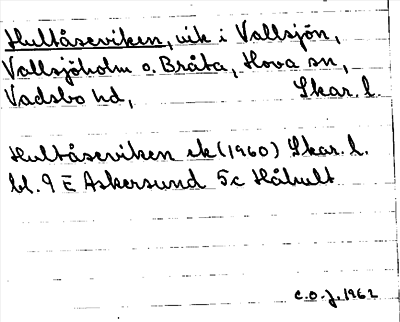 Hultåseviken, vik i Vallsjön,
Vallsjöholm o. Bråta, Hova sn,
Vadsbo hd, Skar. l.
Hultåseviken ek (1960) Skar. l.
bl. 9 E Askersund 5c Håhult
C.O.J. 1962